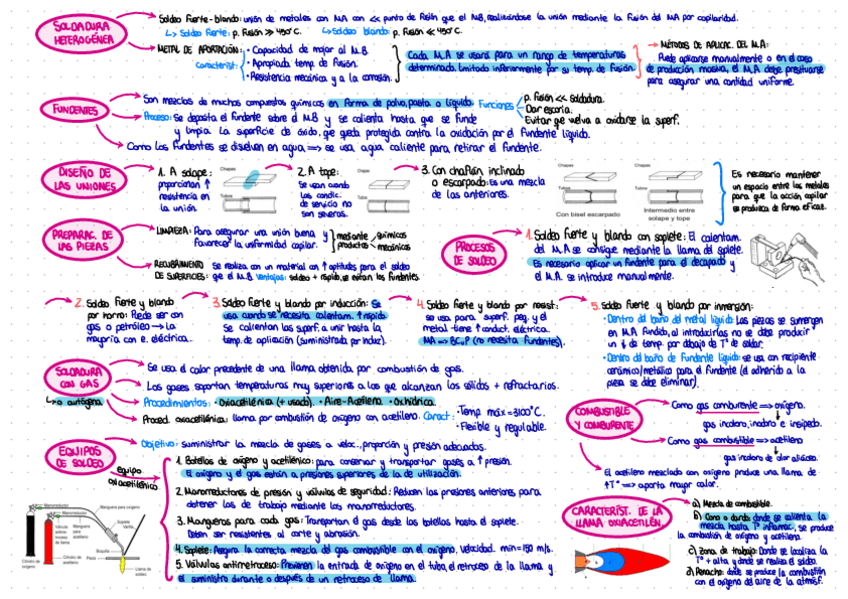 SOLDADURA
HETEROGÉNEA
Soldeo fuerte-blando: unión de metales con MA con << punto de fusión que el M.B, realizándose la unión mediante la fusión del MA por capilaridad.
↳ Soldeo fuerte: p. fusión >> 450°C.
↳ Soldeo blando: p. fusión << 450°C.
METAL DE APORTACIÓN:
Característ:
• Capacidad de mojar al M.B
• Apropiada temp. de fusión.
• Resistencia mecánica y a la corrosión.
Cada M.A se usará para un rango de temperaturas
determinado. Limitado inferiormente por su temp. de fusión.
→ MÉTODOS DE APLICAC. DEL M.A:
Puede aplicarse manualmente o en el caso
de producción masiva, el M.A debe presituarse
para asegurar una cantidad uniforme.
FUNDENTES
Son mezclas de muchos compuestos químicos en forma de polvo, pasta o líquido.
Funciones
p. fusión << soldadura.
Dar escoria.
Evitar que vuelva a oxidarse la superf.
Proceso: Se deposita el fundente sobre el M.B y se calienta hasta que se funde
y limpia. La superficie de óxido, que queda protegida contra la oxidación por el fundente líquido.
Como los fundentes se disuelven en agua ⟹ se usa agua caliente para retirar el fundente.
DISEÑO DE
LAS UNIONES
1. A solape:
proporcionan ↑
resistencia en
la unión.
Chapas
Tubos
2. A tope:
Se usan cuando
las condic.
de servicio no
son severas.
Chapas
Tubos
3. Con chaflán inclinado
o escarpado: Es una mezcla
de las anteriores.
Chapas
Tubos
Con bisel escarpado
Chapas
Tubos
Intermedio entre
solape y tope
Es necesario mantener
un espacio entre los metales
para que la acción capilar
se produzca de forma eficaz.
PREPARAC. DE
LAS PIEZAS
LIMPIEZA: Para asegurar una unión buena y
favorecer la uniformidad capilar.
mediante
productos
químicos
mecánicos
RECUBRIMIENTO
DE SUPERFICIES:
Se realiza con un material con ↑ aptitudes para el soldeo
que el M.B. Ventajas: soldeo + rápido, se evitan los fundentes.
PROCESOS
DE SOLDEO
1. Soldeo fuerte y blando con soplete: El calentam.
del M.A se consigue mediante la llama del soplete.
Es necesario aplicar un fundente para el decapado y
el M.A. se introduce manualmente.
2. Soldeo fuerte y blando
por horno: Puede ser con
gas o petróleo → La
mayoría con e. eléctrica.
3. Soldeo fuerte y blando por inducción: Se
usa cuando se necesita calentam. ↑ rápido
Se calientan las superf. a unir hasta la
temp. de aplicación (suministrada por induc).
4. Soldeo fuerte y blando por resist:
se usa para superf. peq. y el
metal tiene ↑ conduct. eléctrica.
MA ⟹ BCuP (no necesita fundentes).
5. Soldeo fuerte y blando por inmersión:
• Dentro del baño del metal líquido: Las piezas se sumergen
en M.A fundido, al introducirlas no se debe producir
un ↓ de temp. por debajo de T° de soldar.
• Dentro del baño de fundente líquido: se usa con recipiente
cerámico/metálico para el fundente (el adherido a la
pieza se debe eliminar).
SOLDADURA
CON GAS
↳ o autógena.
Se usa el calor procedente de una llama obtenida por combustión de gas.
Los gases soportan temperaturas muy superiores a los que alcanzan los sólidos + refractarios.
Procedimientos: • Oxiacetilénica (+ usado). • Aire-Acetileno. • Oxhídrica.
Proced. oxiacetilénica: llama por combustión de oxígeno con acetileno. Caract:
• Temp. máx = 3100°C.
• Flexible y regulable.
COMBUSTIBLE
Y COMBURENTE
Como gas comburente ⟹ oxígeno.
gas incoloro, inodoro e insípido.
Como gas combustible ⟹ acetileno
gas incoloro de olor aliáceo.
El acetileno mezclado con oxígeno produce una llama de
↑T° ⟹ aporta mayor calor.
EQUIPOS
DE SOLDEO
equipo
oxiacetilénico
Objetivo: suministrar la mezcla de gases a veloc., proporción y presión adecuados.
1. Botellas de oxígeno y acetilénico: para conservar y transportar gases a ↑ presión.
El oxígeno y el gas están a presiones superiores de la de utilización.
2. Manorreductores de presión y válvulas de seguridad: Reducen las presiones anteriores para
obtener las de trabajo mediante los manorreductores.
3. Mangueras para cada gas: Transportan el gas desde las botellas hasta el soplete.
Deben ser resistentes al corte y abrasión.
4. Soplete: Asegura la correcta mezcla del gas combustible con el oxígeno, velocidad. min=150 m/s.
5. Válvulas antirretroceso: Previenen la entrada de oxígeno en el tubo, el retroceso de la llama y
el suministro durante o después de un retroceso de llama.
Manorreductor
Manorreductor
Manguera para oxígeno
Manguera
para
acetileno
Soplete
Varilla
Boquilla
Pieza
Llama de
soldeo
Cilindro de
oxígeno
Cilindro de
acetileno
CARACTERÍST. DE LA
LLAMA OXIACETILÉN
a) Mezcla de combustible.
b) Cono o dardo: donde se calienta la
mezcla hasta T° inflamac, se produce
la combustión de oxígeno y acetileno.
c) Zona de trabajo: Donde se localiza la
T° + alta y donde se realiza el soldeo.
d) Penacho: donde se produce la combustión
con el oxígeno del aire de la atmósf.